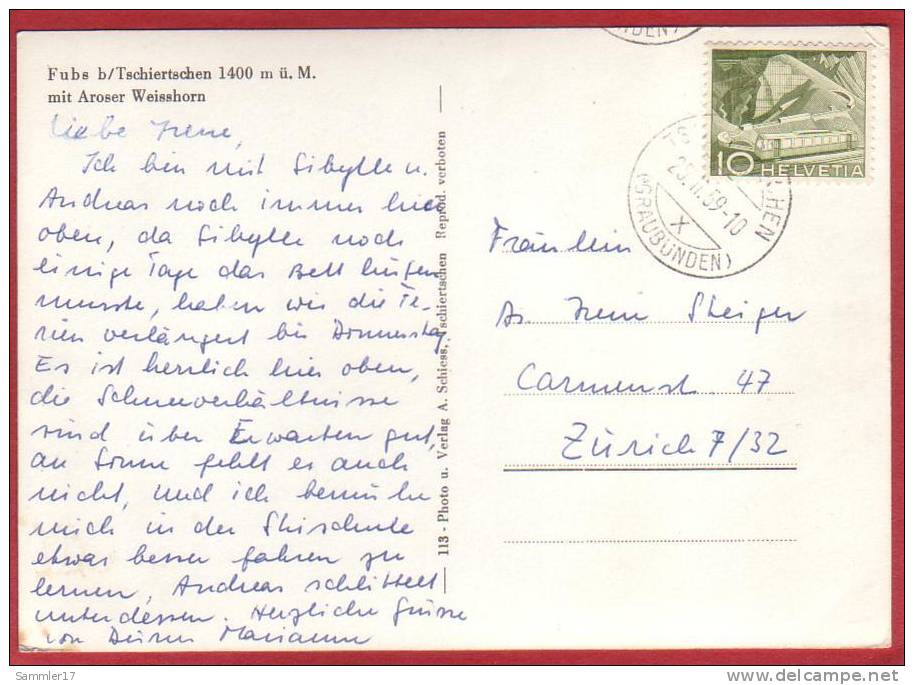 Fubs b/Tschiertschen 1400 m ü. M.
mit Aroser Weisshorn
Liebe Irene,
Ich bin mit Sibylle u.
Andreas noch immer hier
oben, da Sibylle noch
einige Tage das Bett hüten
musste, haben wir die Fe-
rien verlängert bis Donnerstag
Es ist herrlich hier oben,
die Schneeverhältnisse
sind über Erwarten gut,
an Sonne fehlt es auch
nicht, und ich bemühe
mich in der Skischule
etwas besser fahren zu
lernen, Andreas schlittelt
unterdessen. Herzliche Grüsse
von Marianne
113 - Photo u. Verlag A. Schiess, Tschiertschen Reprod. verboten
ÜNDEN)
10 HELVETIA
TS CHEN
25.II.59-10
X
(GRAUBÜNDEN)
Fräulein
Irene Steiger
Carmenst. 47
Zürich 7/32
Sammler17